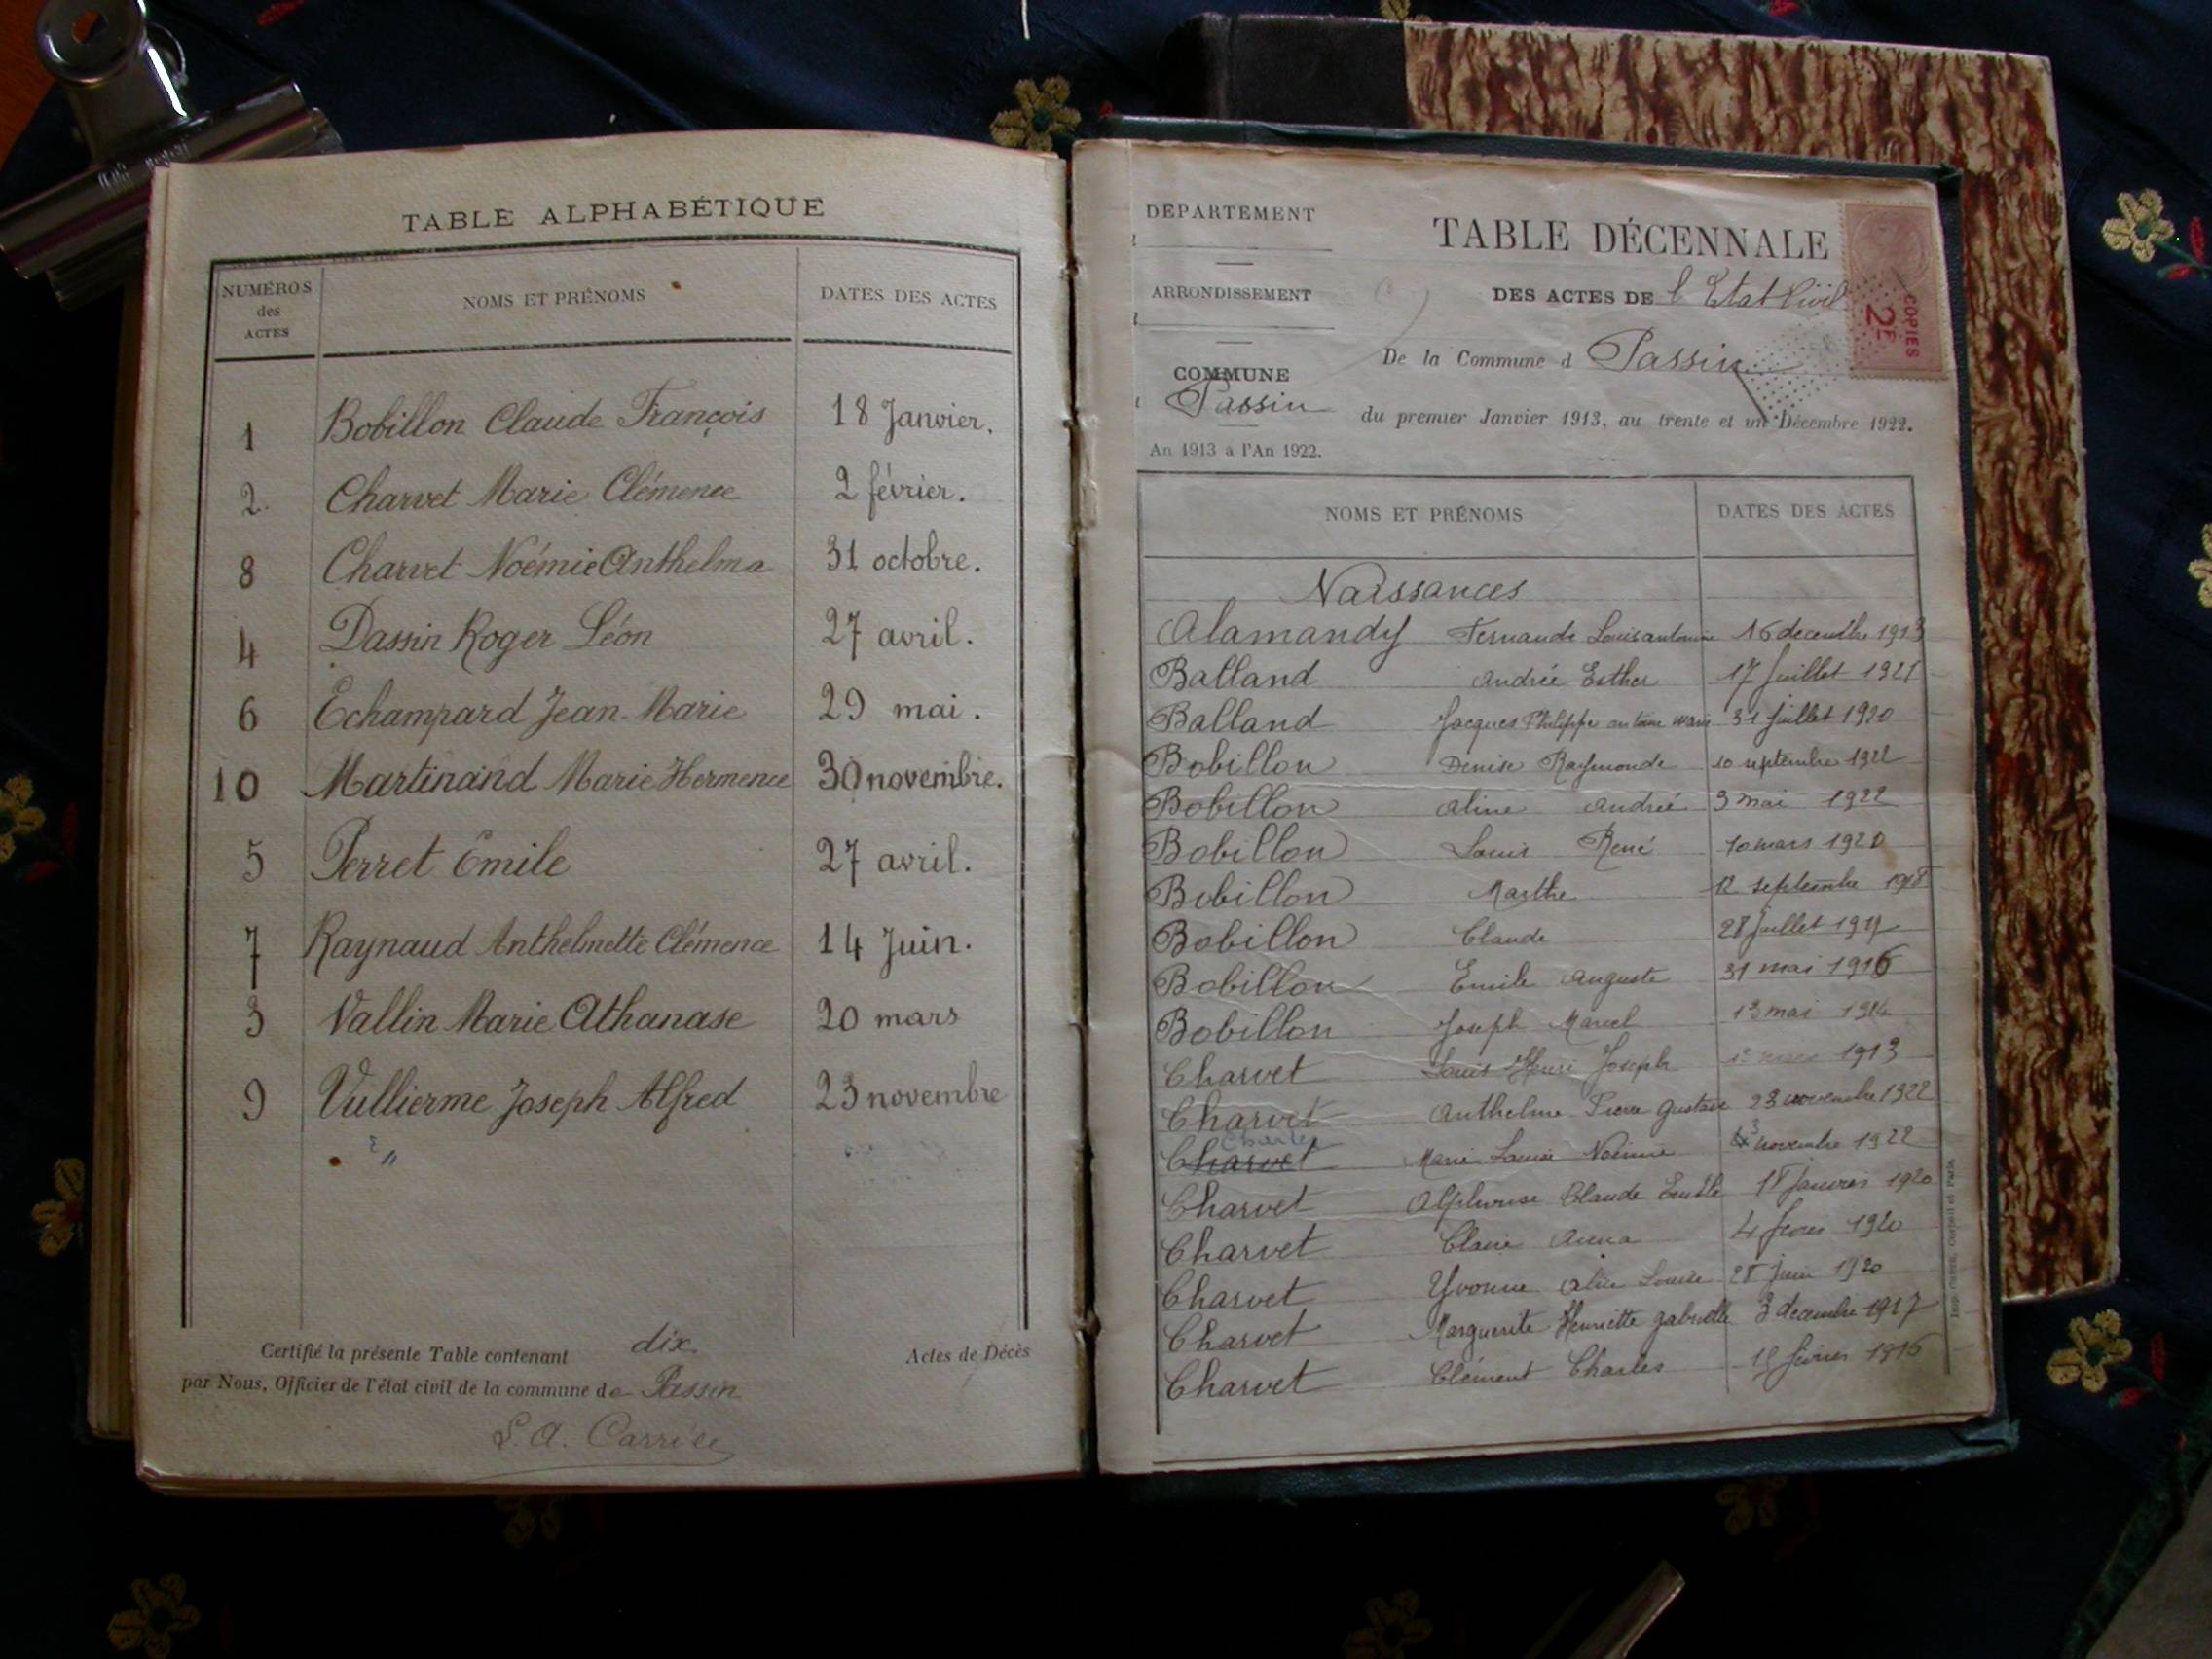 TABLE ALPHABÉTIQUE
NUMÉROS des ACTES NOMS ET PRÉNOMS DATES DES ACTES
1 Bobillon Claude François 18 Janvier.
2. Charvet Marie Clémence 2 février.
8 Charvet Noémie Anthelma 31 octobre.
4 Dassin Roger Léon 27 avril.
6 Echampard Jean-Marie 29 mai.
10 Martinand Marie Hermence 30 novembre.
5 Perret Emile 27 avril.
7 Raynaud Anthelmette Clémence 14 Juin.
3 Vallin Marie Athanase 20 mars
9 Vullierme Joseph Alfred 23 novembre
Certifié la présente Table contenant dix Actes de Décès
par Nous, Officier de l'état civil de la commune de Passin
DÉPARTEMENT
ARRONDISSEMENT
COMMUNE
Passin
An 1913 à l'An 1922.
TABLE DÉCENNALE
DES ACTES DE l'Etat Civil
De la Commune d Passin
du premier Janvier 1913, au trente et un Décembre 1922.
COPIES
2F
NOMS ET PRÉNOMS DATES DES ACTES
Naissances
Alamandy Fernande Louis antonin 16 decembre 1913
Balland Andrée Esther 17 Juillet 1921
Balland Jacques Philippe antoine marie 31 Juillet 1920
Bobillon Denise Raymonde 10 septembre 1922
Bobillon Aline Andrée 3 mai 1922
Bobillon Louis René 10 mars 1920
Bobillon Marthe 12 septembre
Bobillon Claude 28 juillet
Bobillon Emile Auguste 31 mai 1916
Bobillon Joseph Marcel 13 mai 1914
Charvet Louis Henri Joseph 1913
Charvet Anthelme Pierre Gustave 23 novembre 1922
Charvet Marie Louise Noémie novembre 1922
Charvet Alphonse Claude Emile 18 Janvier 1920
Charvet Claire Anna 4 1920
Charvet Yvonne Alice Louise 28 Juin 1920
Charvet Marguerite Henriette gabrielle 3 decembre 1917
Charvet Clément Charles février 1916